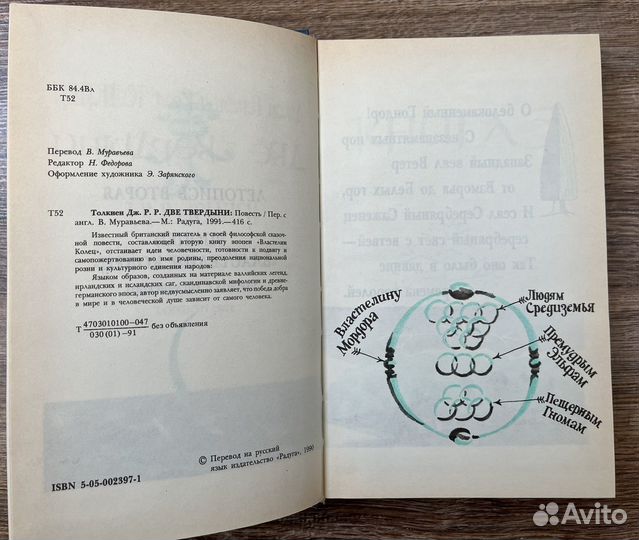 ББК 84.4Вл
Т52
Перевод В. Муравьева
Редактор Н. Федорова
Оформление художника Э. Зарянского
Т52
Толкиен Дж. Р. Р. ДВЕ ТВЕРДЫНИ: Повесть / Пер. с
англ. В. Муравьева.— М.: Радуга, 1991.—416 с.
Известный британский писатель в своей философской сказоч-
ной повести, составляющей вторую книгу эпопеи «Властелин
Колец», отстаивает идеи человечности, готовности к подвигу и
самопожертвованию во имя родины, преодоления национальной
розни и культурного единения народов:
Языком образов, созданных на материале валлийских легенд,
ирландских и исландских саг, скандинавской мифологии и древне-
германского эпоса, автор недвусмысленно заявляет, что победа добра
в мире и в человеческой душе зависит от самого человека.
Т 4703010100—047
030(01)—91 без объявления
© Перевод на русский
язык издательство «Радуга», 1990
ISBN 5-05-002397-1
О белокаменный Гондор!
С незапамятных пор
Западный веял Ветер
от Взморья до Белых гор,
И сеял Серебряный Саженец
серебряный свет с ветвей—
Так оно в давние
королей.
Властелину
Мордора
Людям
Средиземья
Премудрым
Эльфам
Пещерным
Гномам
Avito